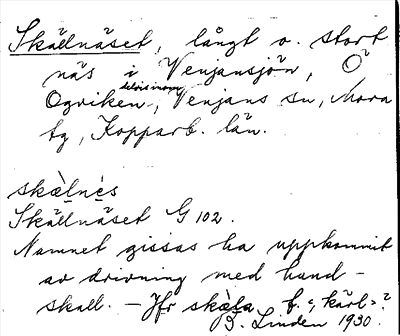 Skällnäset, långt o. stort
näs i Venjansjön, O
Ogviken, Venjans sn, Mora
tg, Kopparb. län.
skæ̀lnè̱s
Skällnäset G 102.
Namnet gissas ha uppkommit
av drivning med hund-
skall. - Jfr skæ̀la f. "kärl"?
B. Linden 1930.